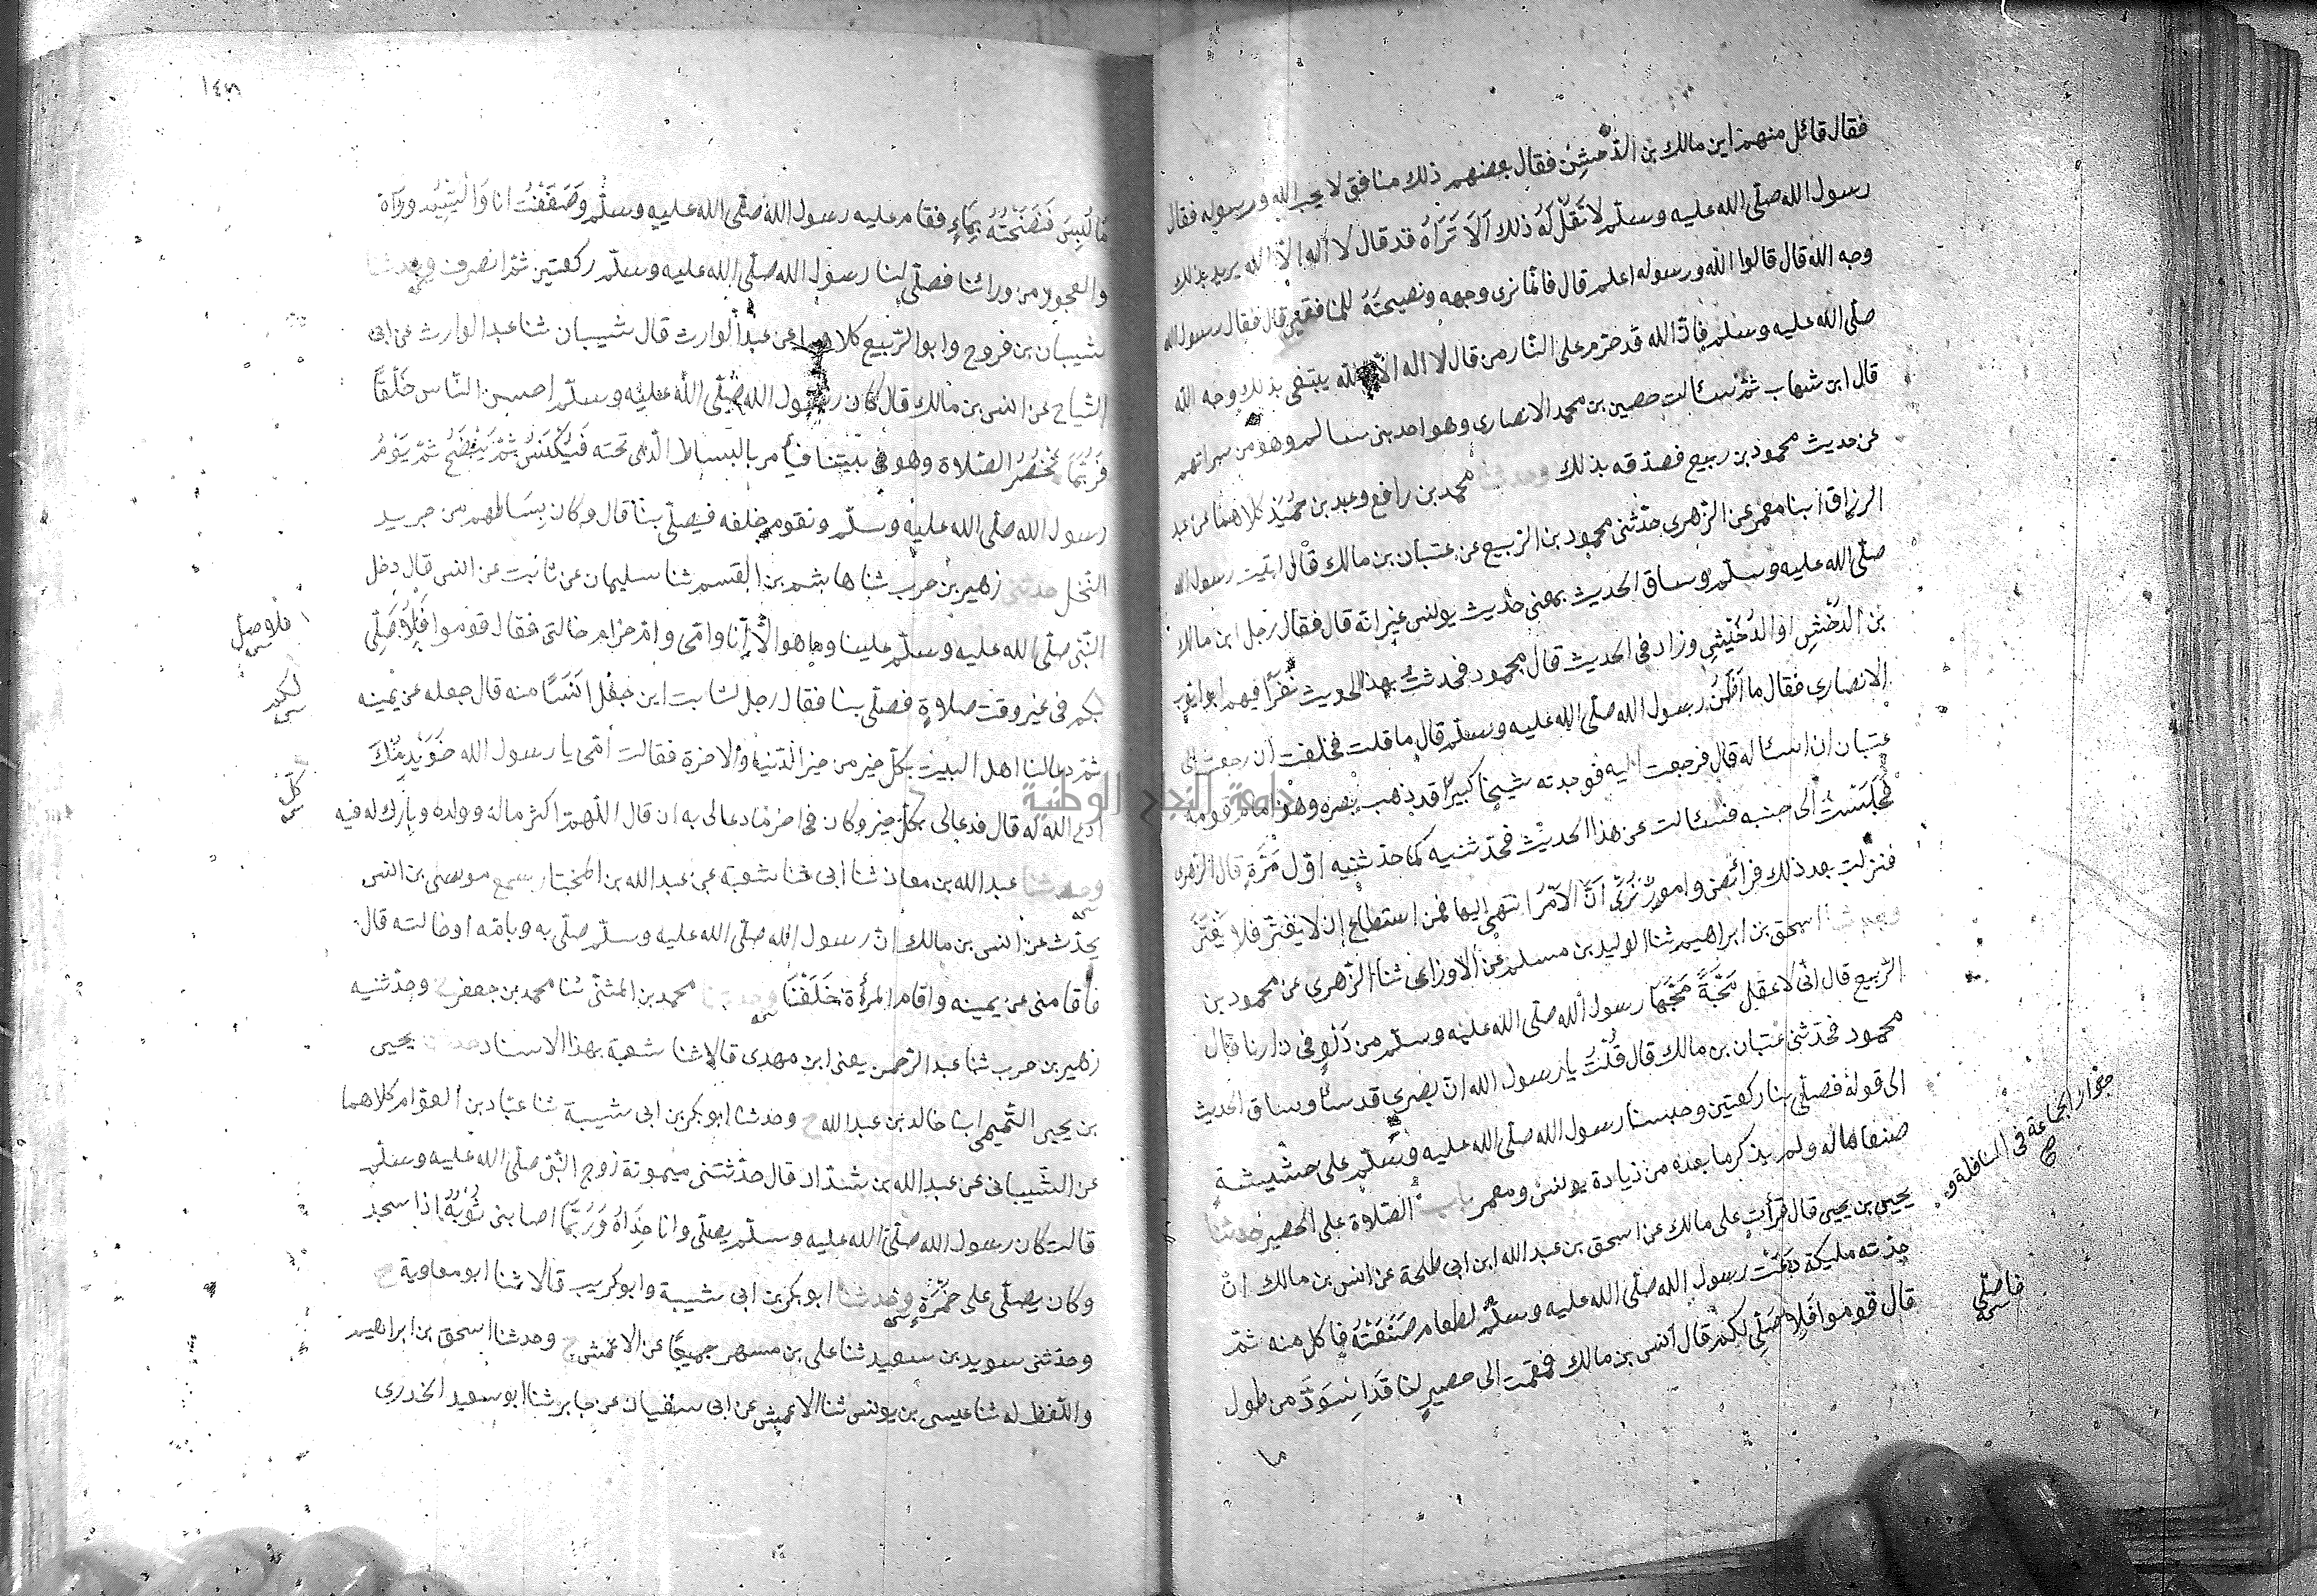 فقال قائل منهم اين مالك بن الدّخشن فقال بعضهم ذلك منافق لا يحب الله ورسوله فقال
رسول الله صلّى الله عليه وسلّم لا تَقُلْ لَهُ ذلك اَلَا تَرَاهُ قد قال لا اله الّا الله يريد بذلك
وجه الله قال قالوا الله ورسوله اعلم قال فانّما نرى وجهه ونصيحتَهُ للمنافقين قال فقال رسول الله
صلّى الله عليه وسلّم فانّ الله قد حرّم على النّار من قال لا اله الّا الله يبتغى بذلك وجه الله
قال ابن شهاب ثمّ سئالت حصين بن محمد الانصارى وهو احد بنى سالم وهو من سراتهم
عن حديث محمود بن ربيع فصدّقه بذلك وحدثنا محمد بن رافع وعبد بن حُمَيْد كلاهما عن عبد
الرزاق انبنا معمر عن الزّهرى حدّثنى محمود بن الربيع عن عتبان بن مالك قال اتيت رسول الله
صلّى الله عليه وسلّم وساق الحديث بمعنى حديث يونس غير انّه قال فقال رجل اين مالك
بن الدُّخْشِنِ او الدُّخَيْشِنِ وزاد فى الحديث قال محمود فحدثتُ بهذا الحديث نَفَرًا فيهم ابو ايّوب
الانصارى فقال ما اَظُنُّ رسول الله صلّى الله عليه وسلّم قال ما قلت فحلفت ان رجعت الى
عتبان ان اسئاله قال فرجعت اليه فوجدته شيخا كبيرًا قد ذهب بصره وهو امام قومه
فجلَسْتُ الى جنبه فسئالت عن هذا الحديث فحدّثنيه كما حدّثنيه اوّل مَرَّةٍ قال الزّهرى
فنزلت بعد ذلك فرائض وامورٌ نُرَى اَنَّ الاَمْرَ انتهى اليها فمن استطاع ان لا يغترّ فلا يَغْتَرَّ
وحدثنا اسحق بن ابراهيم ثنا الوليد بن مسلم عن الاوزاعى ثنا الزّهرى عن محمود بن
الرّبيع قال انّى لاعقل مَجَّةً مَجَّهَا رسول الله صلّى الله عليه وسلّم من دَلْوٍ فى دارنا قال
محمود فحدّثنى عتبان بن مالك قال قُلْتُ يا رسول الله انّ بصرى قد ساء وساق الحديث
الى قوله فصلّى بنا ركعتين وحبسنا رسول الله صلّى الله عليه وسلّم على جَشِيشَةٍ
صنعناها له ولم يذكر ما بعده من زيادة يونس ومعمر باب الصّلاة على الحصير حدثنا
يحيى بن يحيى قال قرأت على مالك عن اسحق بن عبد الله ابن ابى طلحة عن انس بن مالك انّ
جدّته مليكة دَعَتْ رسول الله صلّى الله عليه وسلّم لطعام صَنَعَتْهُ فاكل منه ثمّ
قال قوموا فَلِأُصَلِّىَ لكم قال انس بن مالك فقمت الى حصيرٍ لنا قَدِ اسْوَدَّ من طول
ما
جواز الجماعة فى النافلة و
فاصلّى
١٤٨
مَا لُبِسَ فَنَضَحْتُهُ بِمَاءٍ فقام عليه رسول الله صلّى الله عليه وسلّم وَصَفَفْتُ انا وَالْيَتِيمُ وراءه
والعجوز من ورائنا فصلّى لنا رسول الله صلّى الله عليه وسلّم ركعتين ثمّ انصرف وحدثنا
شيبان بن فروخ وابو الرّبيع كلاهما عن عبد الوارث قال شيبان ثنا عبد الوارث عن ابى
التّيّاح عن انس بن مالك قال كان رسول الله صلّى الله عليه وسلّم احسن النّاس خُلُقًا
فَرُبَّمَا تَحْضُرُ الصّلاة وهو فى بيتنا فيأمر بالبساط الّذى تحته فَيُكْنَسُ ثُمَّ يُنْضَحُ ثمّ يَؤُمُّ
رسول الله صلّى الله عليه وسلّم ونقوم خلفه فيصلّى بنا قال وكان بِسَاطُهم من جريد
النّخل حدثنى زهير بن حرب ثنا هاشم بن القسم ثنا سليمان عن ثابت عن انس قال دخل
النّبىّ صلّى الله عليه وسلّم علينا وما هو الّا انا وامّى وامّ حرام خالتى فقال قوموا فَلِاُصَلِّىَ
بكم فى غير وقت صلاةٍ فصلّى بنا فقال رجل لثابت اين جعل اَنَسًا منه قال جعله عن يمينه
ثمّ دعا لنا اهل البيت بكلّ خير من خير الدّنيا والاخرة فقالت امّى يا رسول الله خُوَيْدِمُكَ
ادع الله له قال فدعا لى بكلّ خير وكان فى اخر ما دعا لى به ان قال اللّهمّ اكثر ماله وولده وبارك له فيه
وحدثنا عبد الله بن معاذ ثنا ابى ثنا شعبة عن عبد الله بن المختار سمع موسى بن انس
يحدّث عن انس بن مالك انّ رسول الله صلّى الله عليه وسلّم صلّى به وبامّه او خالته قال
فأقامنى عن يمينه واقام المرأة خَلْفَنَا وحدثنا محمد بن المثنّى ثنا محمد بن جعفر ح وحدّثنيه
زهير بن حرب ثنا عبد الرّحمن يعنى ابن مهدى قالا ثنا شعبة بهذا الاسناد حدثنا يحيى
بن يحيى التّميمى ابنا خالد بن عبد الله ح وحدثنا ابو بكر بن ابى شيبة ثنا عبّاد بن العوّام كلاهما
عن الشّيبانى عن عبد الله بن شدّاد قال حدّثتنى ميمونة زوج النّبىّ صلّى الله عليه وسلّم
قالت كان رسول الله صلّى الله عليه وسلّم يصلّى وانا حِذَاهُ وَرُبَّمَا اصابنى ثَوْبُهُ اذا سجد
وكان يصلّى على خُمْرَةٍ وحدثنا ابو بكر بن ابى شيبة وابو كريب قالا ثنا ابو معاوية ح
وحدّثنى سويد بن سعيد ثنا على بن مسهر جميعًا عن الاعمش ح وحدثنا اسحق بن ابراهيم
واللّفظ له ثنا عيسى بن يونس ثنا الاعمش عن ابى سفيان عن جابر ثنا ابو سعيد الخدرى
فلاوصل
لكم
لكل
جامعة النجاح الوطنية